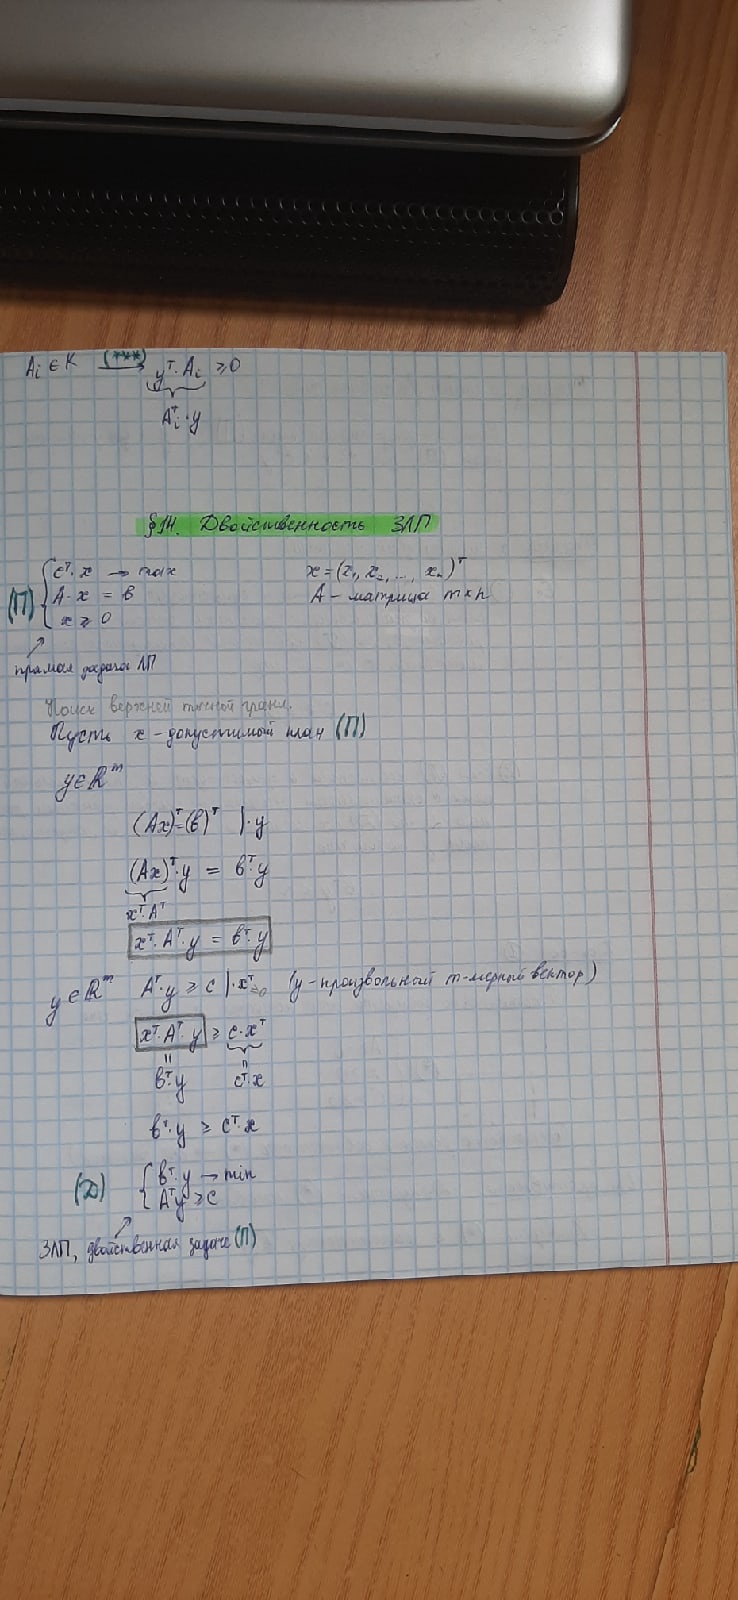 Aᵢ ∈ K (***)→ yᵀ·Aᵢ ≥ 0
Aᵢᵀ·y
§14. Двойственность ЗЛП
(П) { cᵀ·x → max x = (x₁, x₂, ..., xₙ)ᵀ
A·x = b A – матрица m×n
x ≥ 0
прямая задача ЛП
Поиск верхней точной грани.
Пусть x – допустимый план (П)
y ∈ ℝᵐ
(Ax)ᵀ=(b)ᵀ |·y
(Ax)ᵀ·y = bᵀ·y
xᵀ·Aᵀ
xᵀ·Aᵀ·y = bᵀ·y
y ∈ ℝᵐ Aᵀ·y ≥ c |·xᵀ ≥0 (y – произвольный m-мерный вектор)
xᵀ·Aᵀ·y ≥ c·xᵀ
bᵀ·y cᵀ·x
bᵀ·y ≥ cᵀ·x
(Д) { bᵀ·y → min
Aᵀy ≥ c
ЗЛП, двойственная задаче (П)